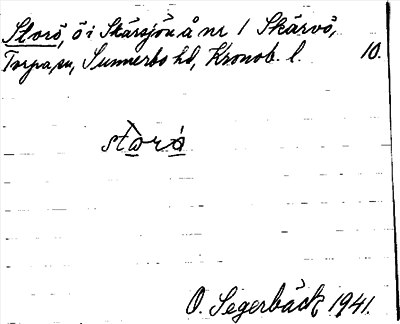 Storö, ö i Skärsjön å nr 1 Skärvö,
Torpa sn, Sunnerbo hd, Kronob. l. 10.
stor ö
O. Segerbäck 1941.